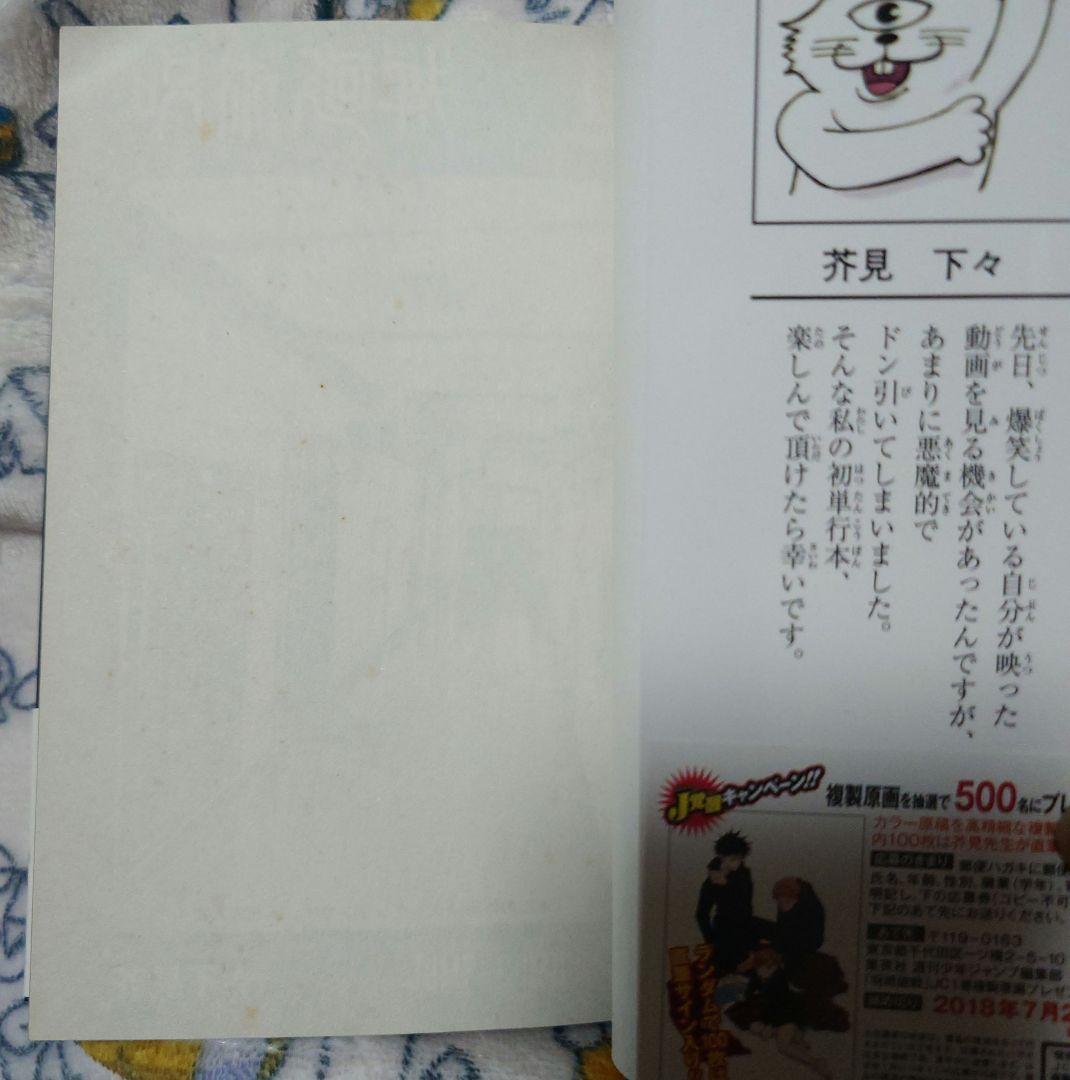 芥見 下々
先日、爆笑している自分が映った
動画を見る機会があったんですが、
あまりに悪魔的で
ドン引いてしまいました。
そんな私の初単行本、
楽しんで頂けたら幸いです。
キャンペーン!!
複製原画を抽選で500名にプレ
カラー原稿を高精細な複製
内100枚は芥見先生が直筆
応募のきまり 郵便ハガキに郵便
氏名、年齢、性別、職業(学年)、
明記し、下の応募券(コピー不可
下記のあて先にお送りください。
あて先 〒119-0163
東京都千代田区一ツ橋2-5-10
集英社 週刊少年ジャンプ編集部
2018年7月2
ランダムで100枚
直筆サイン入り